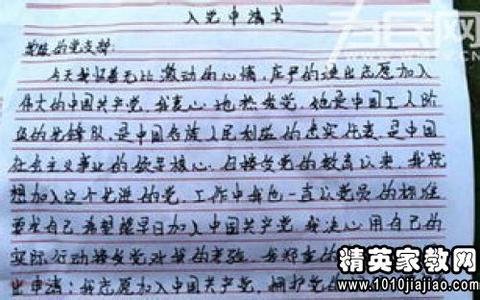 入党申请书
尊敬的党支部:
今天我怀着无比激动的心情,庄严的递出志愿加入
伟大的中国共产党,我衷心地热爱党,她是中国工人阶
级的先锋队,是中国各族人民利益的忠实代表,是中国
社会主义事业的领导核心。自接受党的教育以来,我就
想加入这个先进的党,工作中我也一直以党员的标准
要求自己,希望能早日加入中国共产党。我决心用自己的
实际行动接受党对我的考验,我郑重的
出申请:我志愿加入中国共产党,拥护党的
为民网
精英家教网
www.1010jiajiao.com